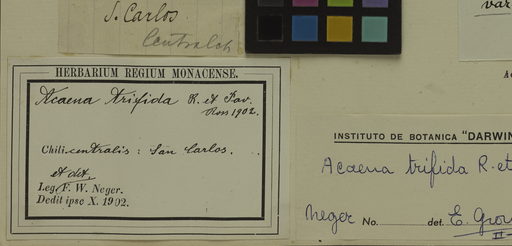 S. Carlos
Centralch
var
HERBARIUM REGIUM MONACENSE.
Acaena trifida R. et Pav.
Ross 1902.
Chili centralis: San Carlos.
et det.
Leg. F. W. Neger.
Dedit ipse X. 1902.
INSTITUTO DE BOTANICA "DARWIN
Acaena trifida R. et
Neger No. det. E. Gro
II